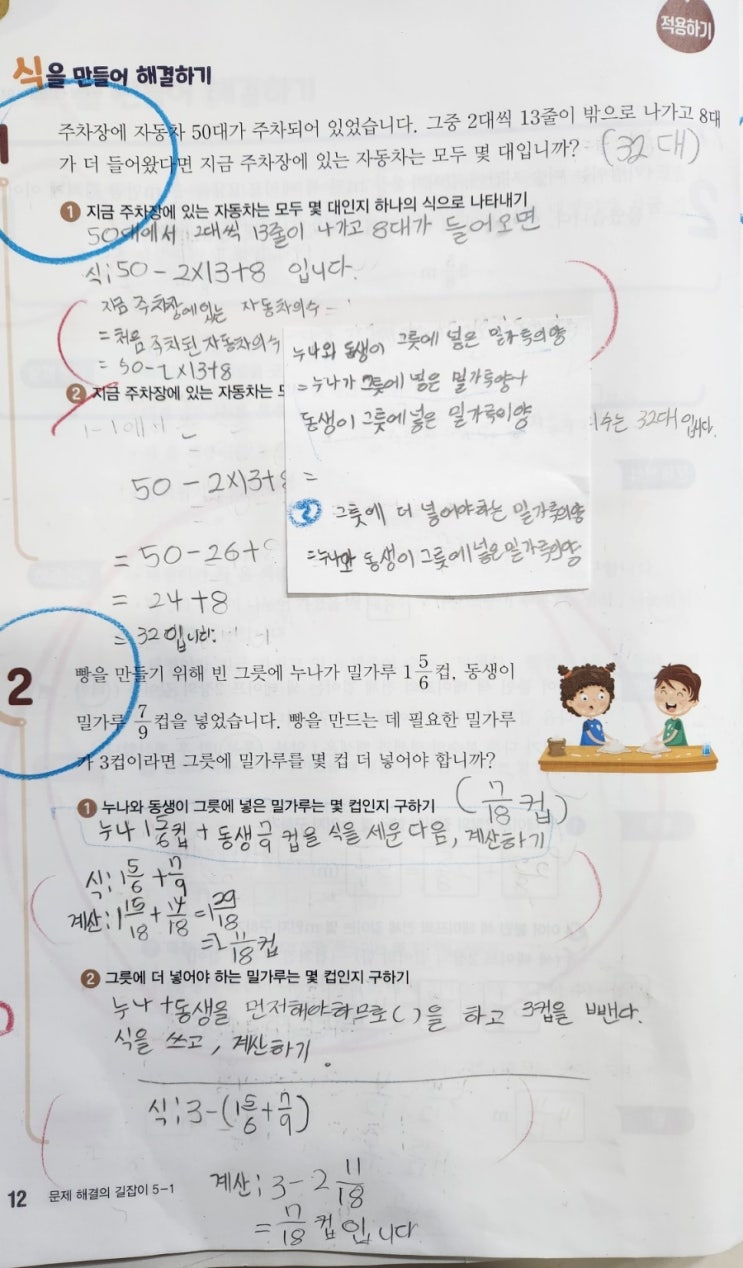 적용하기
식을 만들어 해결하기
1
주차장에 자동차 50대가 주차되어 있었습니다. 그중 2대씩 13줄이 밖으로 나가고 8대
가 더 들어왔다면 지금 주차장에 있는 자동차는 모두 몇 대입니까? (32대)
1 지금 주차장에 있는 자동차는 모두 몇 대인지 하나의 식으로 나타내기
50대에서 2대씩 13줄이 나가고 8대가 들어오면
식: 50-2×13+8 입니다.
지금 주차장에 있는 자동차의 수 =
= 처음 주차된 자동차의 수
= 50-2×13+8
2 지금 주차장에 있는 자동차는 모
수는 32대입니다.
50-2×13+8 =
= 50-26+
= 24+8
= 32입니다.
누나와 동생이 그릇에 넣은 밀가루의 양
= 누나가 그릇에 넣은 밀가루양+
동생이 그릇에 넣은 밀가루이양
② 그릇에 더 넣어야하는 밀가루의양
= 누나와 동생이 그릇에 넣은 밀가루의양
2
빵을 만들기 위해 빈 그릇에 누나가 밀가루 1 5/6컵, 동생이
밀가루 7/9컵을 넣었습니다. 빵을 만드는 데 필요한 밀가루
가 3컵이라면 그릇에 밀가루를 몇 컵 더 넣어야 합니까?
(7/18 컵)
1 누나와 동생이 그릇에 넣은 밀가루는 몇 컵인지 구하기
누나 1 5/6컵 + 동생 7/9 컵을 식을 세운 다음, 계산하기
식: 1 5/6 + 7/9
계산: 1 15/18 + 14/18 = 1 29/18
= 2 11/18 컵
2 그릇에 더 넣어야 하는 밀가루는 몇 컵인지 구하기
누나 + 동생을 먼저해야하므로 ( )을 하고 3컵을 뺀다.
식을 쓰고, 계산하기.
식: 3-(1 5/6 + 7/9)
계산: 3-2 11/18
= 7/18 컵입니다
12 문제 해결의 길잡이 5-1